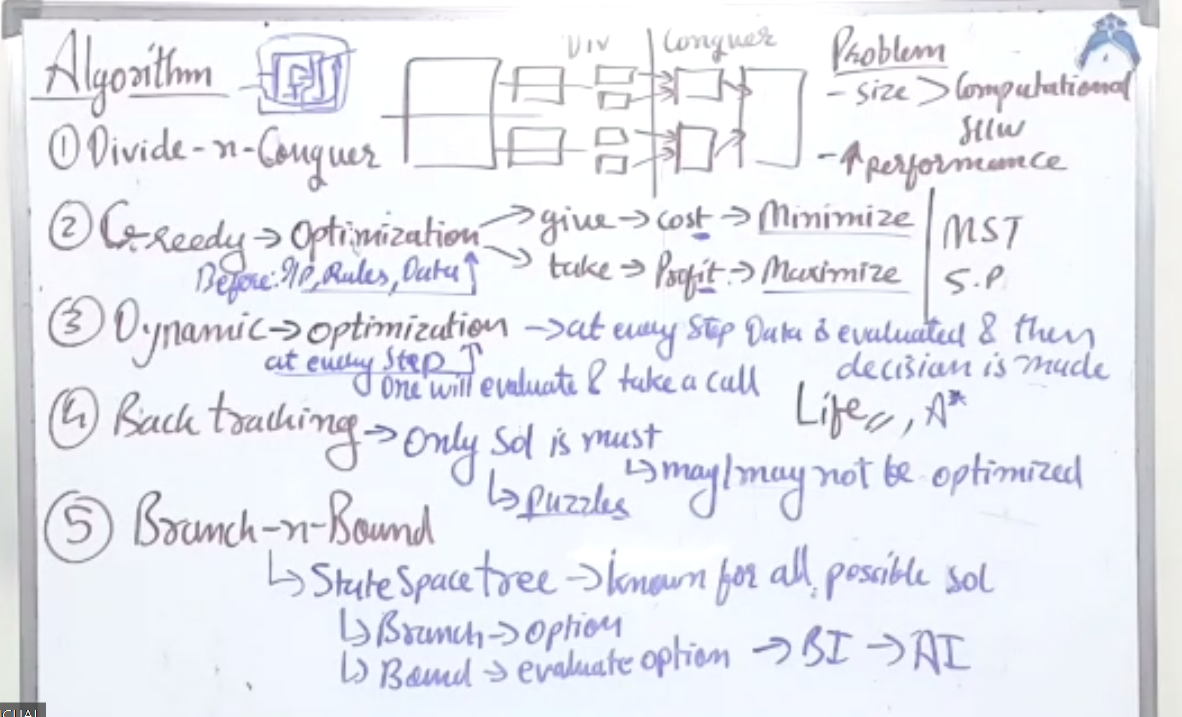 Algorithm
Div Conquer
Problem
- size > Computational
- ↑ performance
① Divide-n-Conquer
② Greedy → Optimization → give → cost → Minimize
→ take → Profit → Maximize
MST
S.P.
Before: I/P, Rules, Data ↑
③ Dynamic → optimization → at every Step Data is evaluated & then
decision is made
at every Step ↑
One will evaluate & take a call
Life, A*
④ Back tracking → Only Sol is must
↳ may/may not be optimized
↳ Puzzles
⑤ Branch-n-Bound
↳ State Space tree → known for all possible sol
↳ Branch → option
↳ Bound → evaluate option → BI → AI